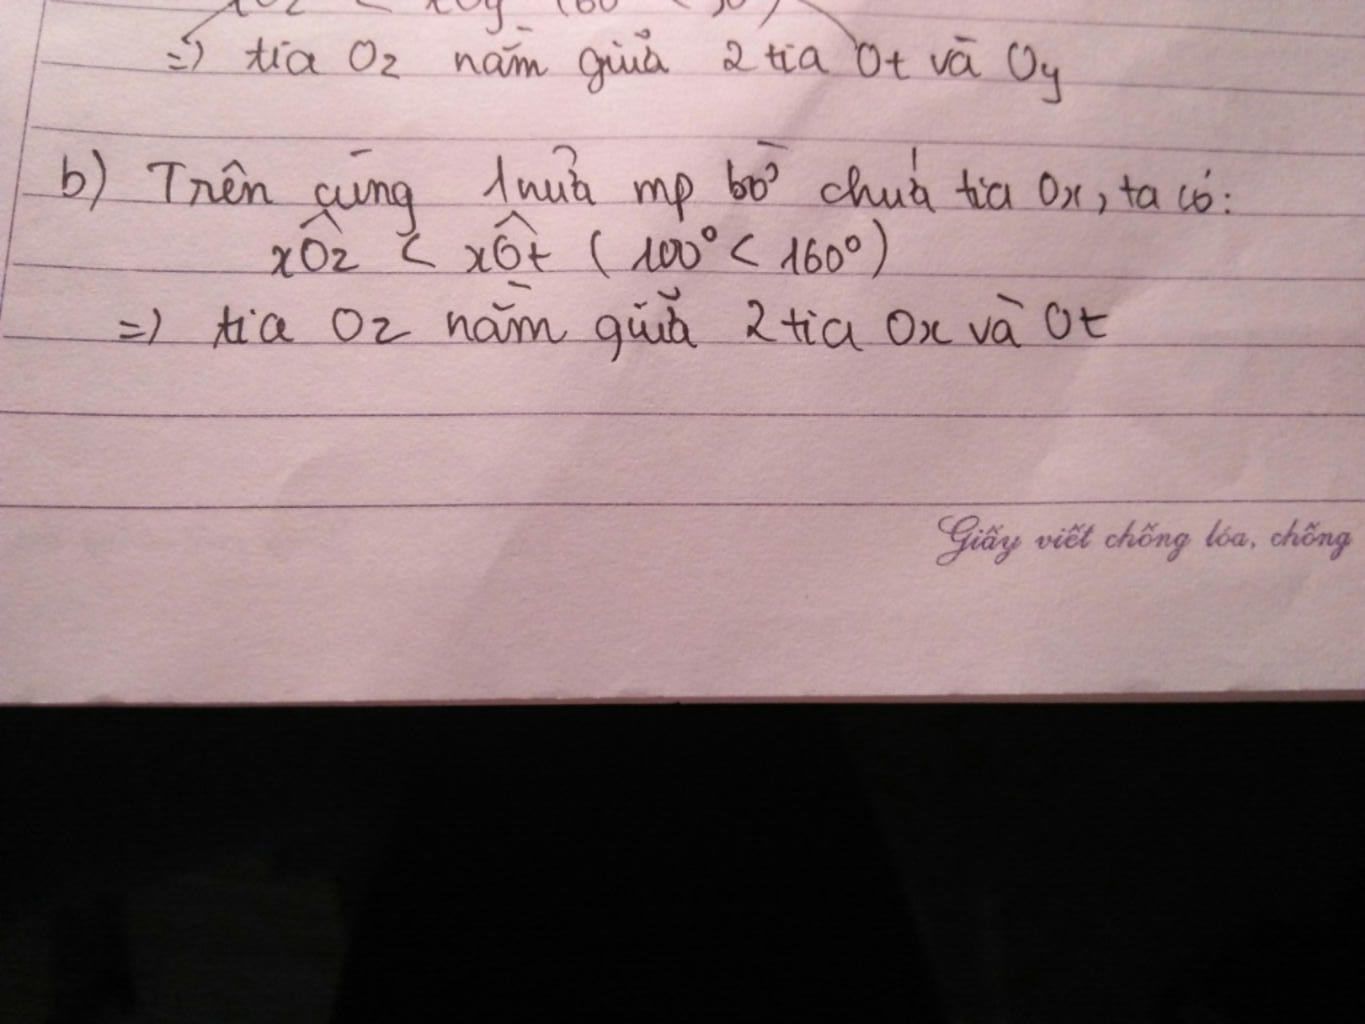 => tia Oz nằm giữa 2 tia Ot và Oy
b) Trên cùng 1 nửa mp bờ chứa tia Ox, ta có:
xÔz < xÔt (100° < 160°)
=> tia Oz nằm giữa 2 tia Ox và Ot
Giấy viết chống lóa, chống